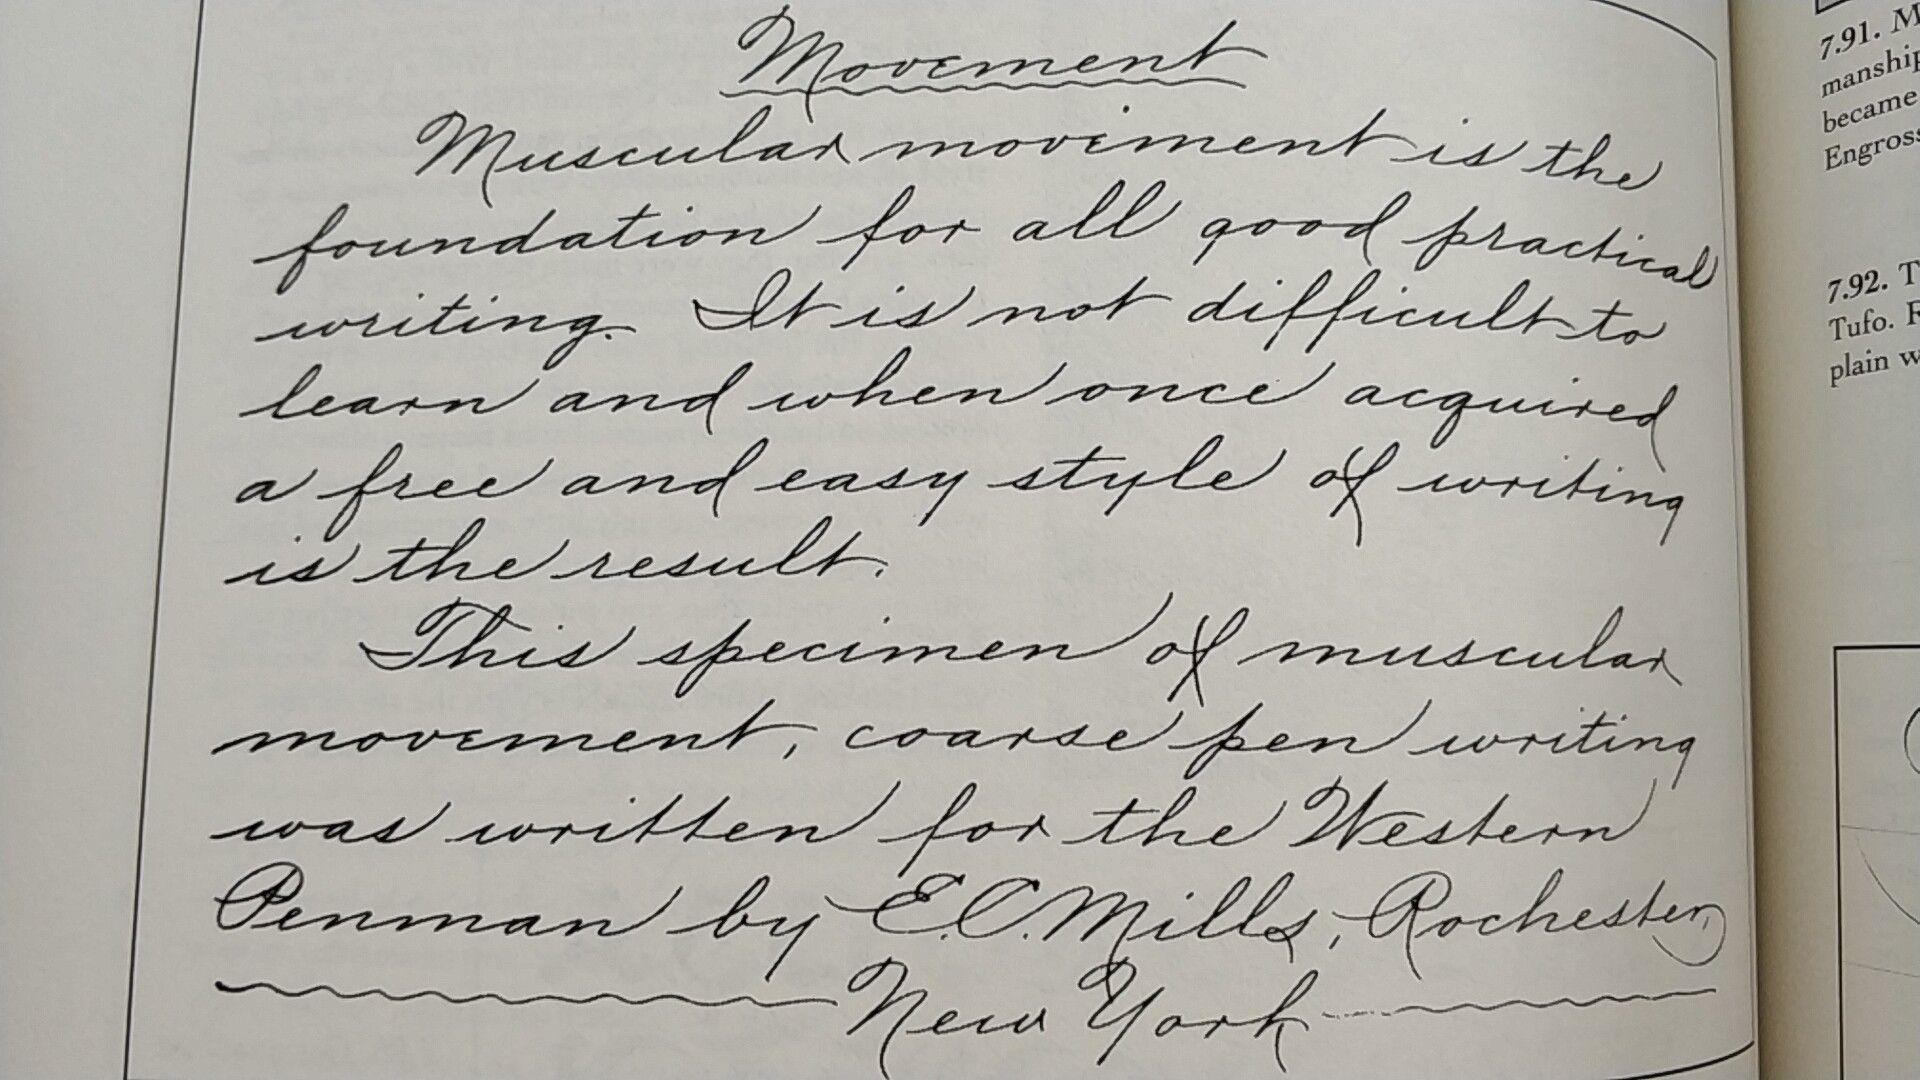 Movement
Muscular movement is the
foundation for all good practical
writing. It is not difficult to
learn and when once acquired
a free and easy style of writing
is the result.
This specimen of muscular
movement, coarse pen writing
was written for the Western
Penman by E.C. Mills, Rochester,
New York
7.91. M
manship
became
Engross
7.92. T
Tufo. F
plain w